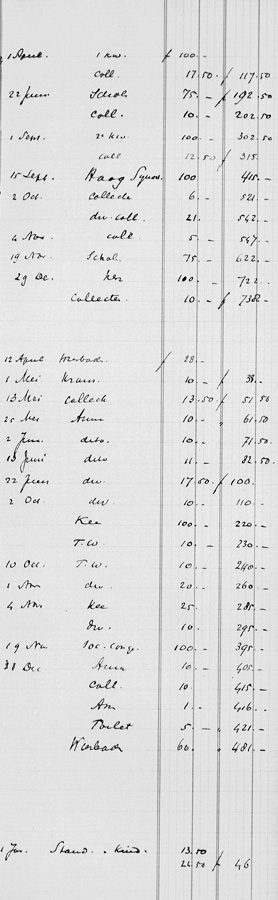 1 April. 1 kw. f 100.-
coll. 17.50 f 117.50
22 Juni Schol. 75.- f 192.50
coll. 10.- 202.50
1 Sept. 2e kw. 100.- 302.50
coll 12.50 f 315.
15 Sept. Haag 100 415.-
2 Oct. collecte 6.- 521.-
div. coll. 21. 542.-
4 Nov. coll. 5.- 547.-
19 Nov. Schol. 75.- 622.-
29 Dec. 100.- 722.-
Collecten 10.- f 732.-
12 April f 28.-
1 Mei 10.- f 38.-
13 Mei Collect 13.50 f 51.50
25 Mei Anna 10.- 61.50
2 Juni. dito. 10.- 71.50
13 Juni dito 11.- 82.50
22 Juni div. 17.50 f 100.
2 Oct. div. 10.- 110.-
Kee 100.- 220.-
T.W. 10.- 230.-
10 Oct. T.W. 10.- 240.-
1 Nov div. 20.- 260.-
4 Nov. Kee 25. 285.-
Div. 10. 295.-
19 Nov Soc. Congr. 100.- 395.-
31 Dec Anna 10.- 405.-
Coll. 10. 415.-
Ann 1.- 416.-
Toilet 5.- 421.-
60. 481.-
1 Jan. Stand. Kind. 13.50
22.50 f 46